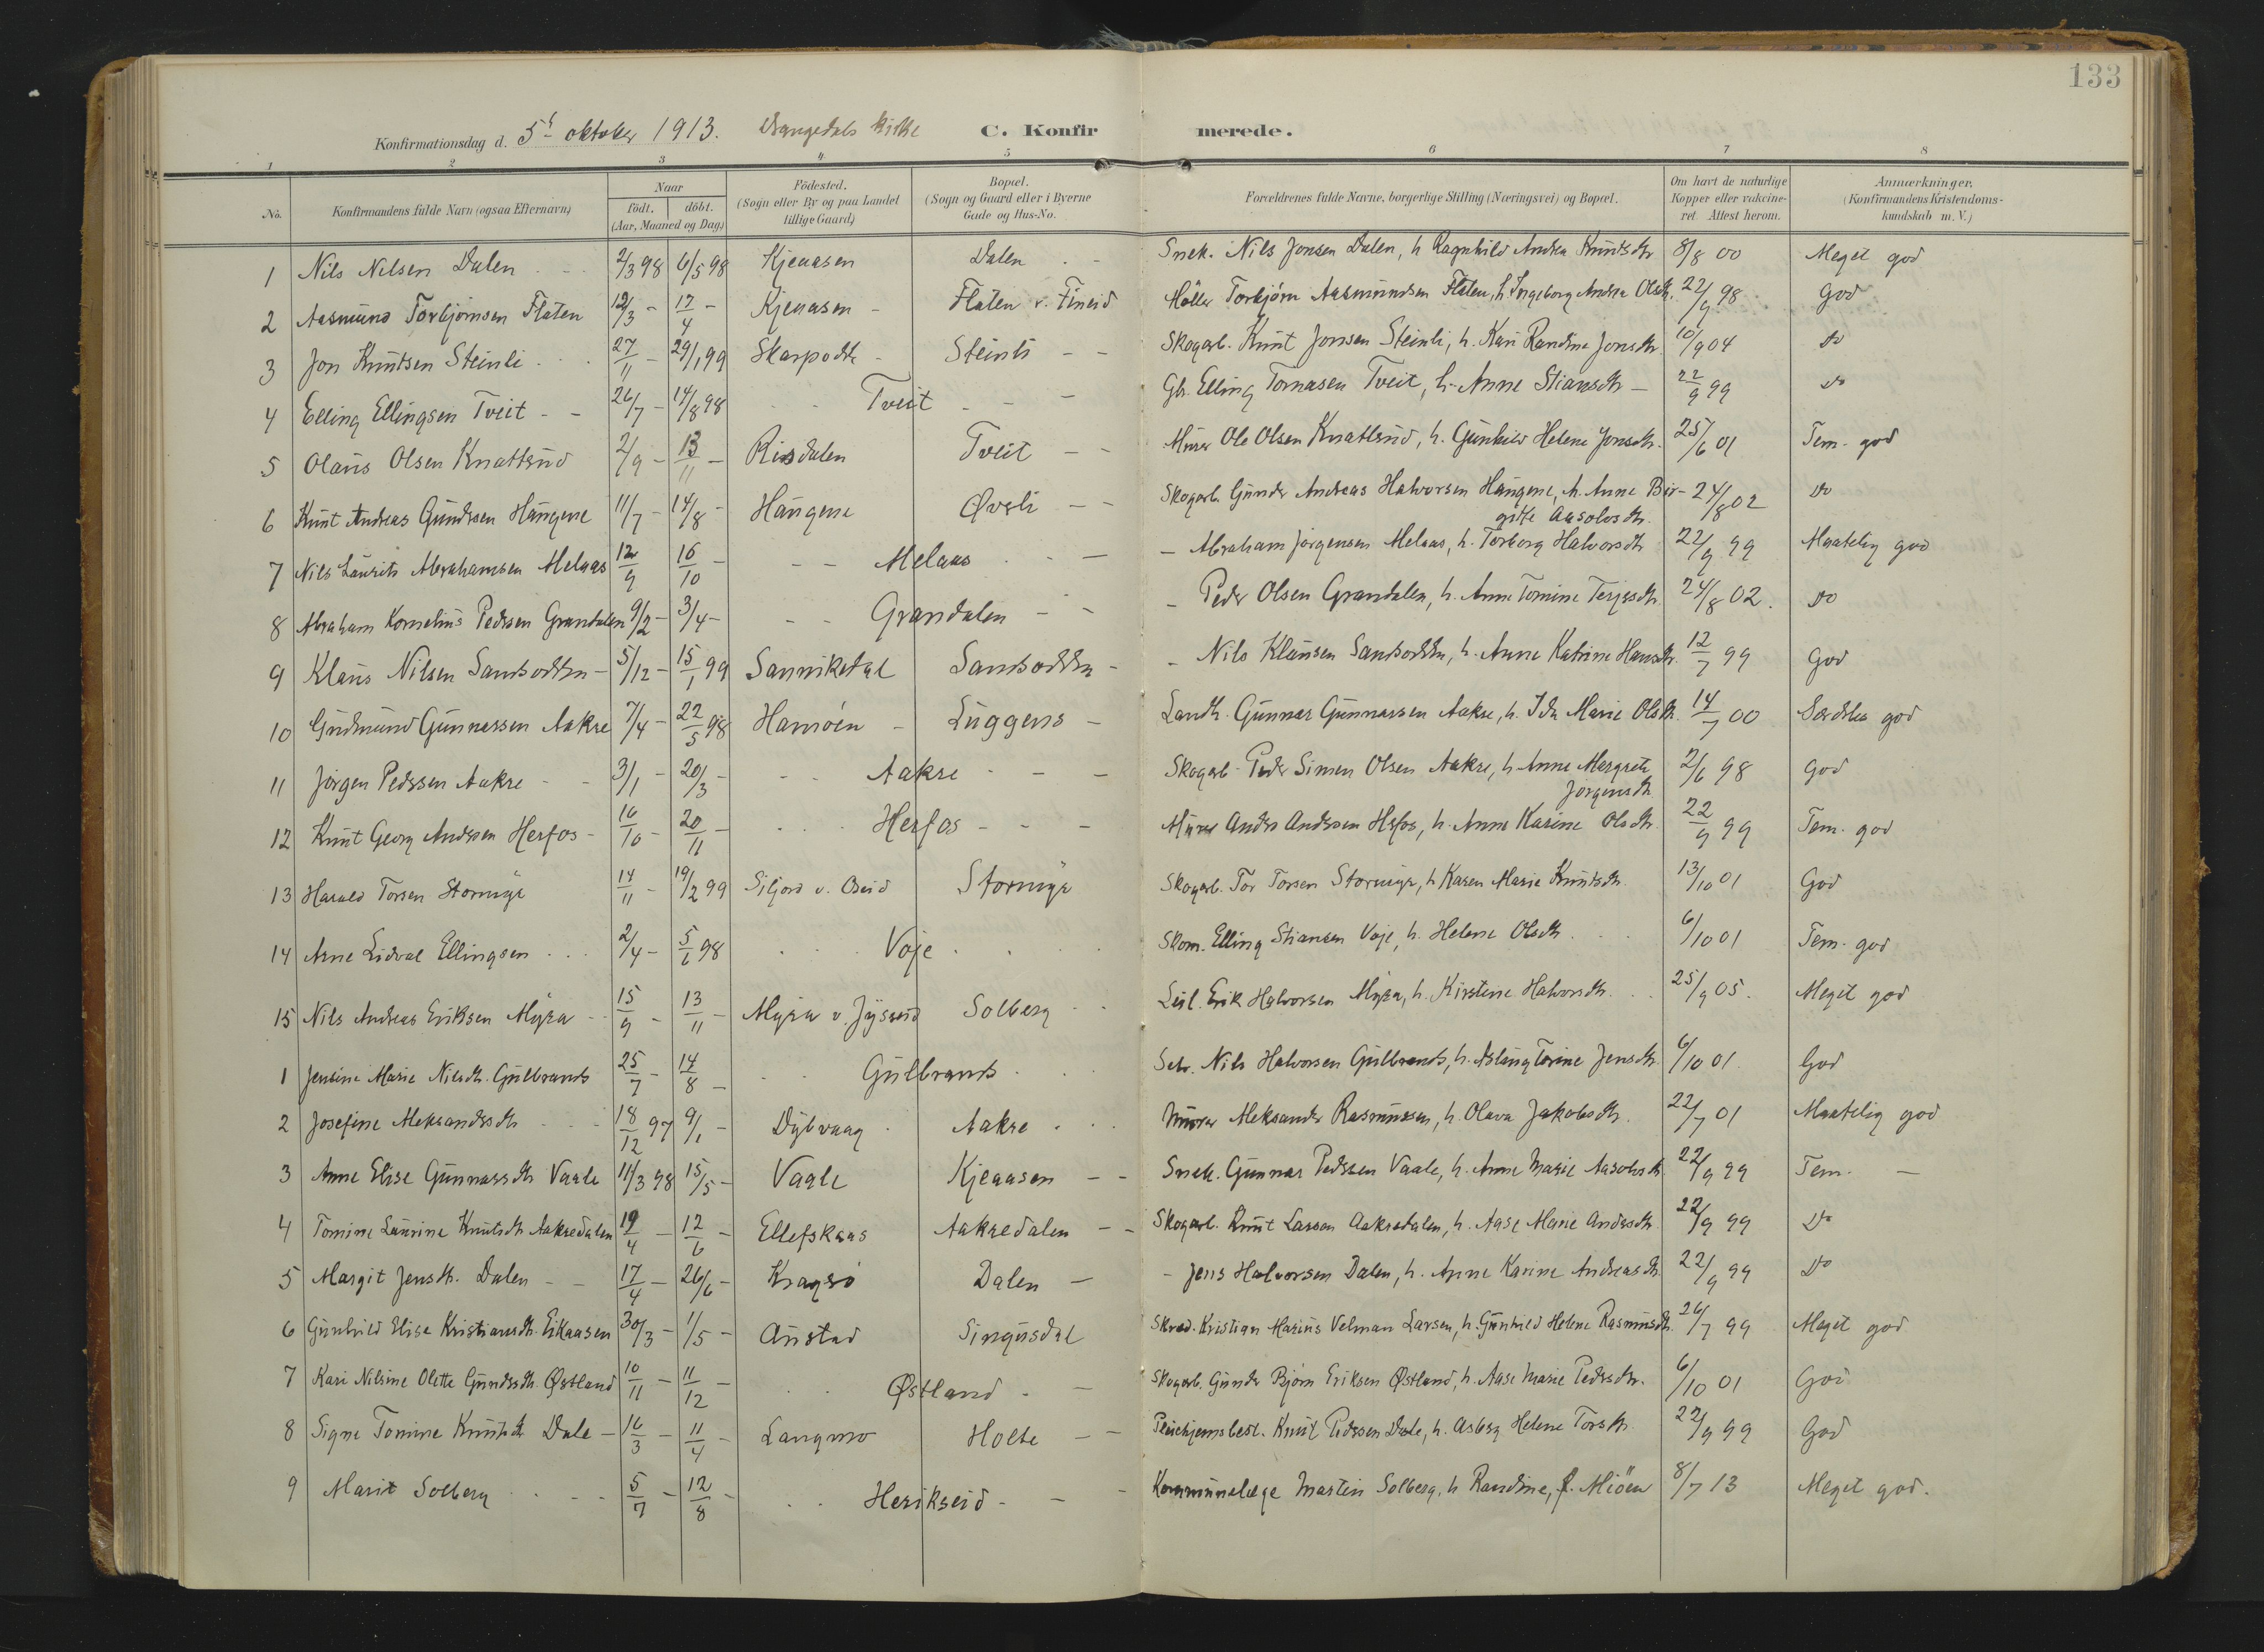 133
Konfirmationsdag d. 5te oktober 1913. Drangedals kirke C. Konfirmerede.
1 2 3 4 5 6 7 8
No. Konfirmandens fulde Navn (ogsaa Efternavn) Naar födt, döbt. (Aar, Maaned og Dag) Födested. (Sogn eller By og paa Landet tillige Gaard) Bopæl. (Sogn og Gaard eller i Byerne Gade og Hus-No. Forældrenes fulde Navne, borgerlige Stilling (Næringsvei) og Bopæl. Om havt de naturlige Kopper eller vakcineret. Attest herom. Anmærkninger. (Konfirmandens Kristendomskundskab m. V.)
1 Nils Nilsen Dalen 2/3 98 6/5 98 Kjeaasen Dalen Snek. Nils Jonsen Dalen, h. Ragnhild Andrea Knutsdtr 8/8 00 Meget god
2 Aasmund Torbjørnsen Flaten 12/3 - 17/4 - Kjeaasen - Flaten v. Fineid Møller Torbjørn Aasmundsen Flaten, h. Ingeborg Andrea Olsdtr. 22/9 98 God
3 Jon Knutsen Steinli 27/11 - 29/1 99 Skarpodte - Steinli - - Skogarb. Knut Jonsen Steinli, h. Kari Randine Jonsdtr. 10/9 04 Do
4 Elling Ellingsen Tveit - - 26/7 - 14/8 98 Tveit - - - Gb. Elling Tomasen Tveit, h. Anne Stiansdtr - 22/9 99 Do
5 Olaus Olsen Knatterud 2/9 - 13/11 - Risdalen Tveit - - Murer Ole Olsen Knatterud, h. Gunhild Helene Jonsdtr. 25/6 01 Tem. god
6 Knut Andreas Gundersen Haugene 11/7 - 14/8 - Haugene Øvsli - - Skogarb. Gunder Andreas Halvorsen Haugene, h. Anne Bir- 24/8 02 Do
gitte Aasolvsdtr.
7 Nils Laurits Abrahamsen Melaas 12/9 16/10 - - - Melaas - - Abraham Jørgensen Melaas, h. Torborg Halvorsdtr 22/9 99 Maatelig god
8 Abraham Kornelius Pedersen Grandalen 9/2 - 3/4 - - - Grandalen - - - Peder Olsen Grandalen, h. Anne Tomine Terjesdtr. 24/8 02. Do
9 Klaus Nilsen Sandsodden - 5/12 - 15/1 99 Sannikedal Sandsodden - - Nils Klausen Sandsodden, h. Anne Katrine Hansdtr. 12/7 99 God
10 Gudmund Gunnarsen Aakre 7/4 - 22/5 98 Hamøen - Luggens - Landh. Gunnar Gunnarsen Aakre, h. Ida Marie Olsdtr. 14/7 00 Særdeles god
11 Jørgen Pedersen Aakre - - 3/1 - 20/3 - - - Aakre - - - Skogarb. Peder Simen Olsen Aakre, h. Anne Margrete 2/6 98 God
Jørgensdtr
12 Knut Georg Andersen Herfos - 16/10 - 20/11 - Herfos - - - Murer Anders Andersen Herfos, h. Anne Karine Olsdtr. 22/9 99 Tem. god
13 Harald Torsen Stormyr 14/11 - 19/2 99 Siljord v. Bseid Stormyr Skogarb. Tor Torsen Stormyr, h. Karen Marie Knutsdtr. 13/10 01 God
14 Arne Lidval Ellingsen 2/4 - 5/6 98 Voje Skom. Elling Stiansen Voje, h. Helene Olsdtr 6/10 01 Tem. god
15 Nils Andreas Eriksen Myra - - 15/9 - 13/11 - Myra v. Solberg Leil. Erik Halvorsen Myra, h. Kirstine Halvorsdtr. 25/9 05. Meget god
1 Jensine Marie Nilsdtr. Gulbrands 25/7 - 14/8 - Gulbrands Selv. Nils Halvorsen Gulbrands, h. Aslaug Torine Jensdtr. 6/10 01 God
2 Josefine Aleksandersdtr 18/12 97 9/1 - Dybvaag Aakre Murer Aleksander Rasmussen, h. Olava Jakobsdtr. 22/7 01 Maatelig god
3 Anne Elise Gunnarsdtr Vaale 11/3 98 15/5 - Vaale Kjeaasen - - Snek. Gunnar Pedersen Vaale, h. Anne Marie Aasolvsdtr 22/9 99 Tem. -
4 Tomine Laurine Knutsdtr Aakredalen 19/4 - 12/6 - Ellefskaas Aakredalen - - Skogarb. Knut Larsen Aakredalen, h. Aase Marie Andersdtr 22/9 99 Do
5 Margit Jensdtr. Dalen - - 17/4 - 26/6 - Kragerø Dalen - - Jens Halvorsen Dalen, h. Anne Karine Andreasdtr. 22/9 99 Do
6 Gunhild Elise Kristiansdtr. Eikaasen 30/3 - 1/5 - Austad Singusdal Skræd. Kristian Marius Velman Larsen, h. Gunhild Helene Rasmusdtr. 26/7 99 Meget god
7 Kari Nilsine Olette Gundersdtr. Østland 10/11 - 11/12 - Østland - - Skogarb. Gunder Bjørn Eriksen Østland, h. Aase Marie Pedersdtr. 6/10 01 God
8 Signe Tomine Knutsdtr Dale - 16/3 - 11/4 - Langmo Holte - - Pleiehjemsbest. Knut Pedersen Dale, h. Asberg Helene Torsdtr. 22/9 99 God
9 Marit Solberg 5/7 - 12/8 - Henrikseid - - - Kommunelæge Martin Solberg, h. Randine, f. Miöen 8/7 13 Meget god.